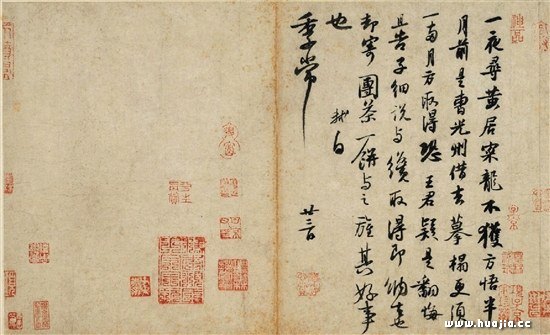 一夜尋黃居寀龍不獲方悟半
月前是曹光州借去摹搨更須
一兩月方取得恐王君疑是翻悔
且告子細說與纔取得即納去也
却寄團茶一餅與之旌其好事
也 軾白
季常
廿三日
www.huajia.cc